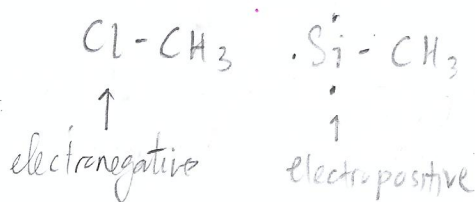 Cl-CH3 .Si-CH3
↑ ↑
electronegative electropositive